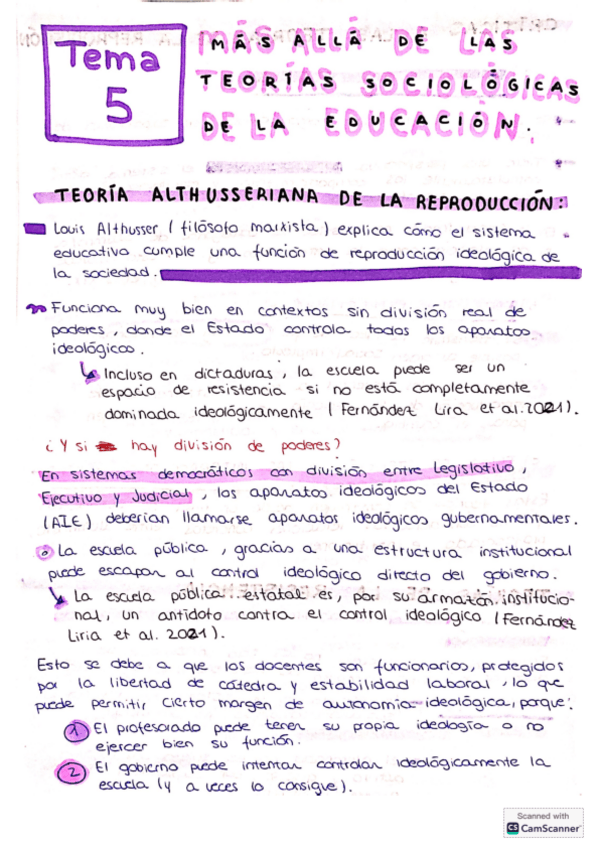 Tema
5
MÁS ALLÁ DE LAS
TEORÍAS SOCIOLÓGICAS
DE LA EDUCACIÓN.
TEORÍA ALTHUSSERIANA DE LA REPRODUCCIÓN:
Louis Althusser (filósofo marxista) explica cómo el sistema
educativo cumple una función de reproducción ideológica de
la sociedad.
Funciona muy bien en contextos sin división real de
poderes, donde el Estado controla todos los aparatos
ideológicos.
Incluso en dictaduras, la escuela puede ser un
espacio de resistencia si no está completamente
dominada ideológicamente (Fernández Lira et al. 2021).
¿Y si hay división de poderes?
En sistemas democráticos con división entre Legislativo,
Ejecutivo y Judicial, los aparatos ideológicos del Estado
(AIE) deberían llamarse aparatos ideológicos gubernamentales.
La escuela pública, gracias a una estructura institucional
puede escapar al control ideológico directo del gobierno.
La escuela pública estatal es, por su armazón institucio-
nal, un antídoto contra el control ideológico (Fernández
Liria et al. 2021).
Esto se debe a que los docentes son funcionarios, protegidos
por la libertad de cátedra y estabilidad laboral, lo que
puede permitir cierto margen de autonomía ideológica, porque:
1 El profesorado puede tener su propia ideología o no
ejercer bien su función.
2 El gobierno puede intentar controlar ideológicamente la
escuela (y a veces lo consigue).
Scanned with
CS CamScanner